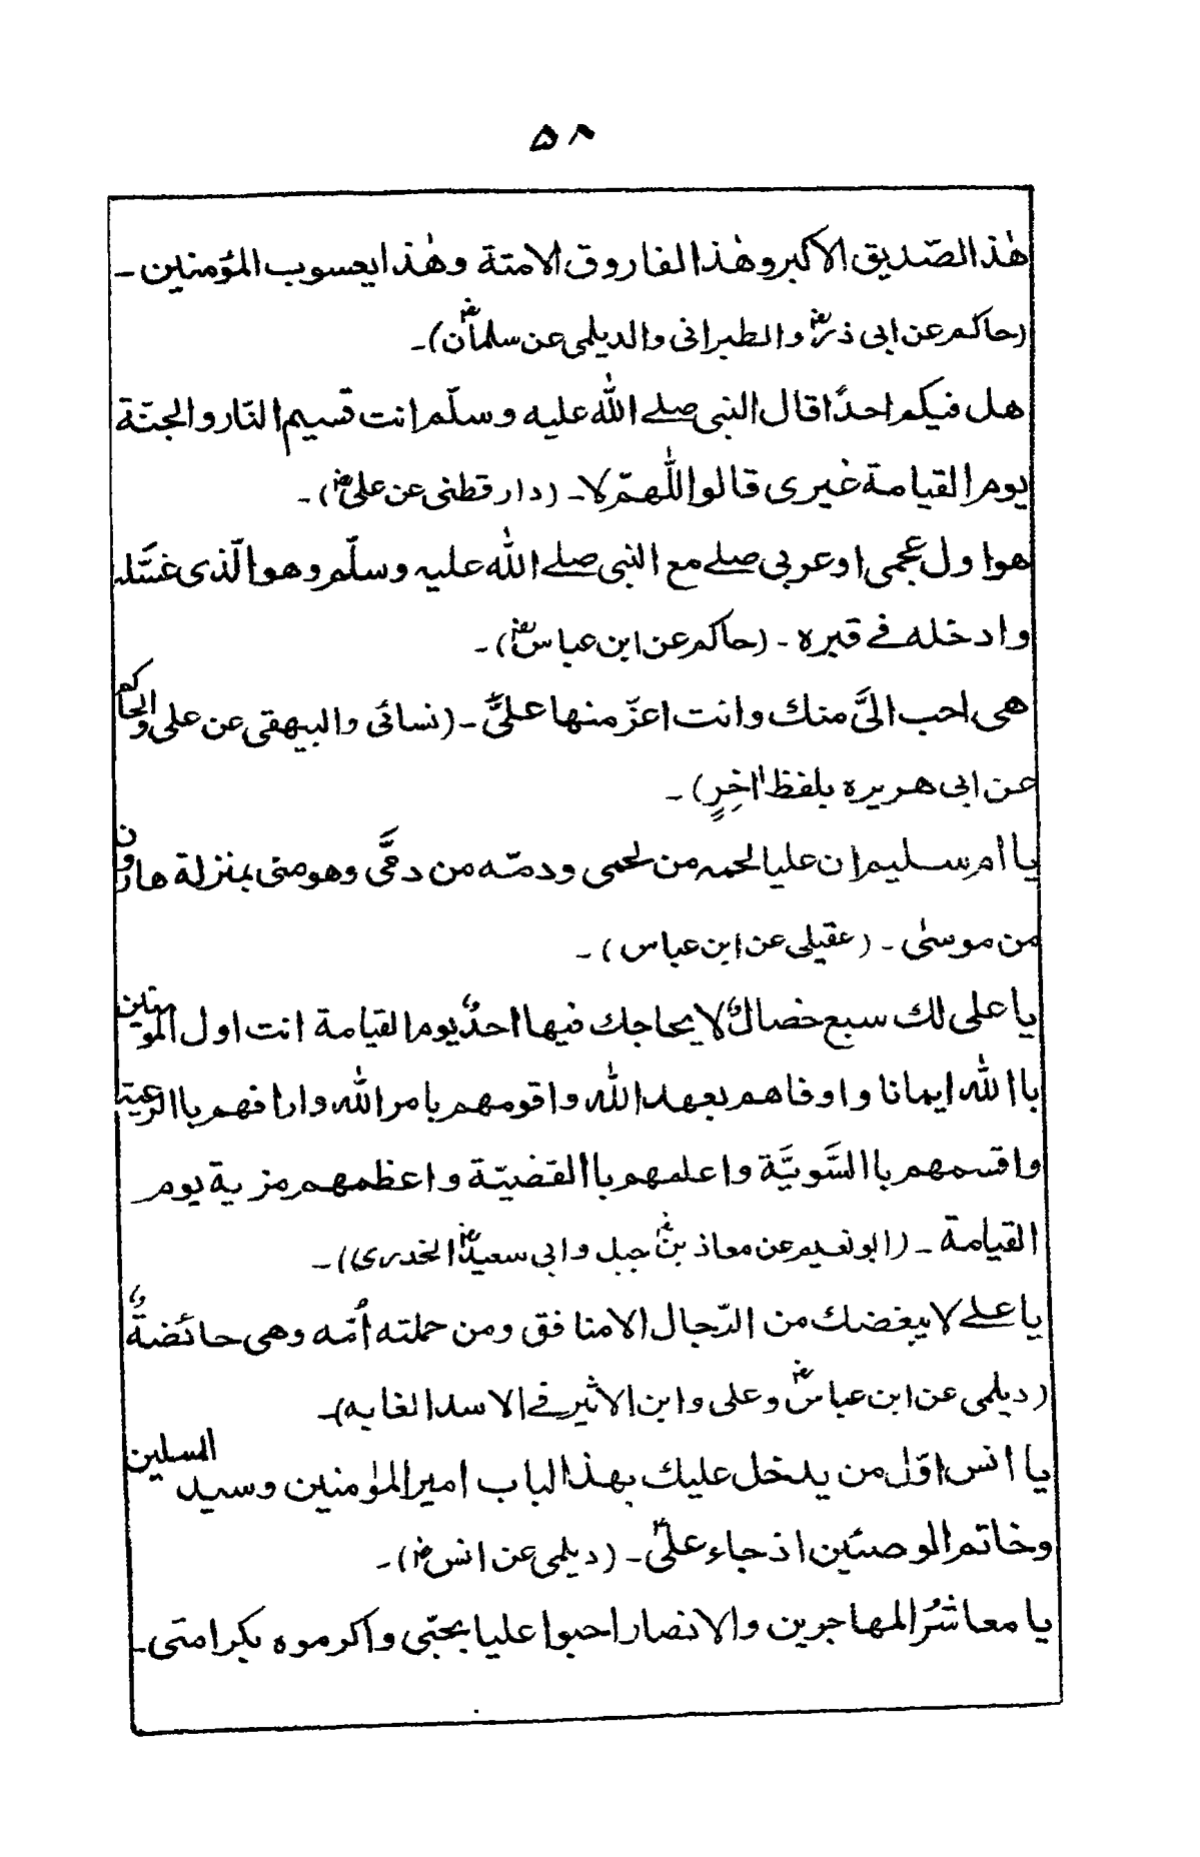 ۵۸
هٰذالصّديق الاكبر وهٰذالفاروق الامتة وهٰذا يعسوب المؤمنين ـ
(حاكم عن ابى ذرؓ والطبرانى والديلمى عن سلمانؓ)ـ
هل فيكم احدًا قال النبى صلے اللّٰه عليه وسلّم انت قسيم النّار والجنّة
يوم القيامة غيرى قالوا اللّٰهمّ لا ـ (دار قطنى عن علىؓ) ـ
هوا ول عجمى اوعربى صلے مع النبى صلے اللّٰه عليه وسلّم وهوالّذى غسّله
وادخله فے قبره ـ (حاكم عن ابن عباسؓ) ـ
هى احب الىَّ منك وانت اعزّ منها علىَّ ـ (نسائى والبيهقى عن على والحاكم
عن ابى هريره بلفظ اٰخِرٍ) ـ
يا ام سليم ان عليا لحمه من لحمى ودمّه من دمّى وهو منى بمنزلة هارون
من موسٰى ـ (عقيلى عن ابن عباس) ـ
يا على لك سبع خصالٌ لا يحاجك فيها احدٌ يوم القيامة انت اول المومنين
باا اللّٰه ايمانا و اوفاهم بعهد اللّٰه واقومهم بامر اللّٰه وارافهم باالرعية
واقسمهم باالسَّويَّة واعلمهم باالقضيّة واعظمهم مزية يوم
القيامة ـ (ابونعيم عن معاذ بنؓ جبل وابى سعيدؓ الخدرى)ـ
يا علے لا يبغضك من الرّجال الا منافق ومن حملته اُمّه وهى حائضةٌ
(ديلمى عن ابن عباسؓ وعلى وابن الاثير فے الاسد الغابه)ـ
يا انس اوّل من يدخل عليك بهذ الباب امير المؤمنين وسيد المسلين
وخاتم الوصيّين اذ جاء علىؓ ـ (ديلمى عن انسؓ) ـ
يا معاشرُ المهاجرين والانصار احبوا عليا بحبّى واكرموه بكرامتى ـ